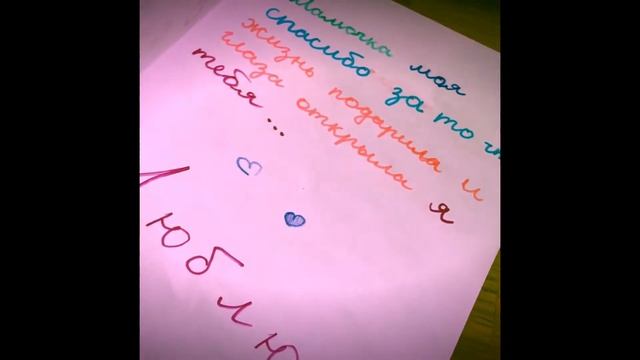 Мамочка моя
спасибо за то чт
жизнь подарила и
глаза открыла я
тебя...
Люблю